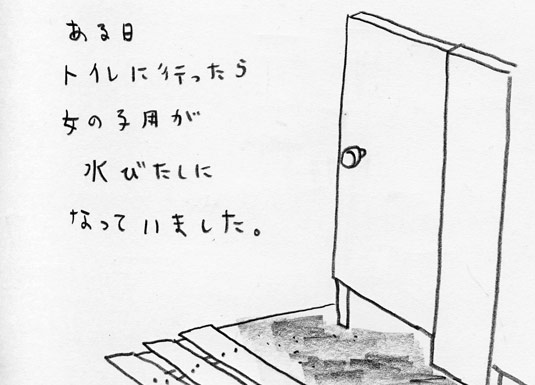 ある日
トイレに行ったら
女の子用が
水びたしに
なっていました。